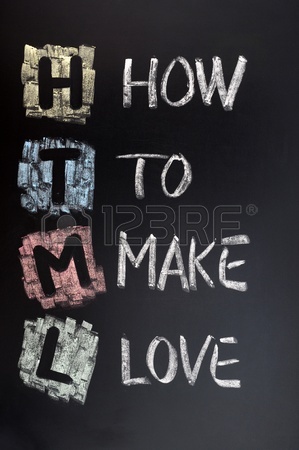 H HOW
T TO
M MAKE
L LOVE
123RF